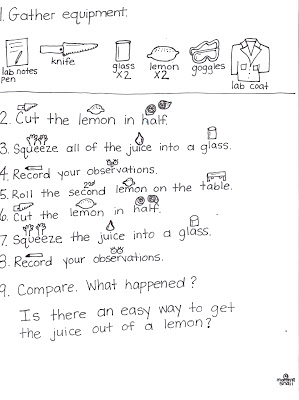 1. Gather equipment.
lab notes
pen
knife
glass
x2
lemon
x2
goggles
lab coat
2. Cut the lemon in half.
3. Squeeze all of the juice into a glass.
4. Record your observations.
5. Roll the second lemon on the table.
2nd
6. Cut the lemon in half.
7. Squeeze the juice into a glass.
8. Record your observations.
9. Compare. What happened?
Is there an easy way to get
the juice out of a lemon?